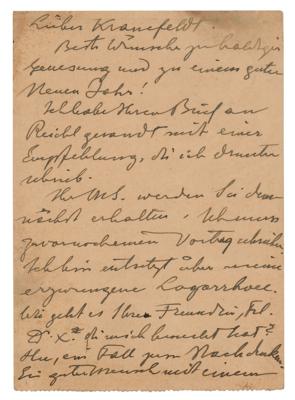 Lieber Kranefeldt.
Beste Wünsche zu baldiger
Genesung und zu einem guten
Neuen Jahr!
Ich habe Ihren Brief an
Reichl gesandt mit einer
Empfehlung, die ich drunter
schrieb.
Ihr MS. werden Sie dem
nächst erhalten. Ich muss
zuvor noch einen Vortrag schreiben.
Ich bin entsetzt über meine
erzwungene Logorrhoee.
Wie geht es Ihrer Freundin, Frl.
Dr. X. die mich besucht hat?
Hm, ein Fall zum Nachdenken.
Ein guter Mensch mit einem